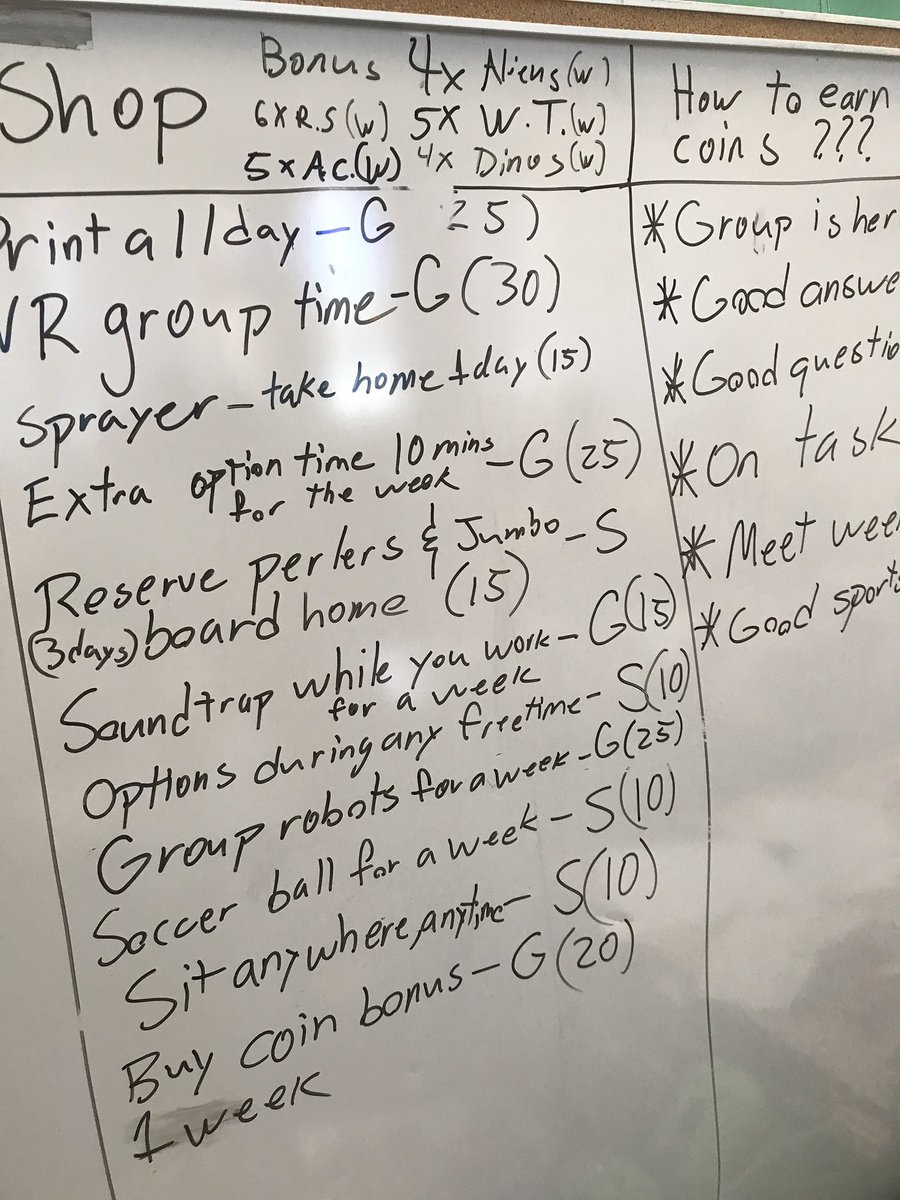 Shop
Bonus 4x Aliens(w)
6xR.S(w) 5x W.T.(w)
5xAC.(W) 4x Dinos(w)
Print all day - G 25)
VR group time - G (30)
Sprayer - take home 1 day (15)
Extra option time 10 mins - G (25)
for the week
Reserve perlers & Jumbo - S
(3days) board home (15)
Soundtrap while you work - G(15)
for a week
Options during any freetime - S(10)
Group robots for a week - G(25)
Soccer ball for a week - S(10)
Sit anywhere, anytime - S(10)
Buy coin bonus - G(20)
1 week
How to earn
coins ???
*Group is her
*Good answe
*Good questio
*On task
*Meet wee
*Good sports